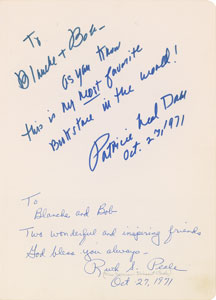 To
Blanche + Bob -
as you know
this is my most favorite
Book store in the world!
Patricia Neal Dahl
Oct. 27, 1971
To
Blanche and Bob
Two wonderful and inspiring friends
God bless you always -
Ruth S. Peale
Oct 27, 1971